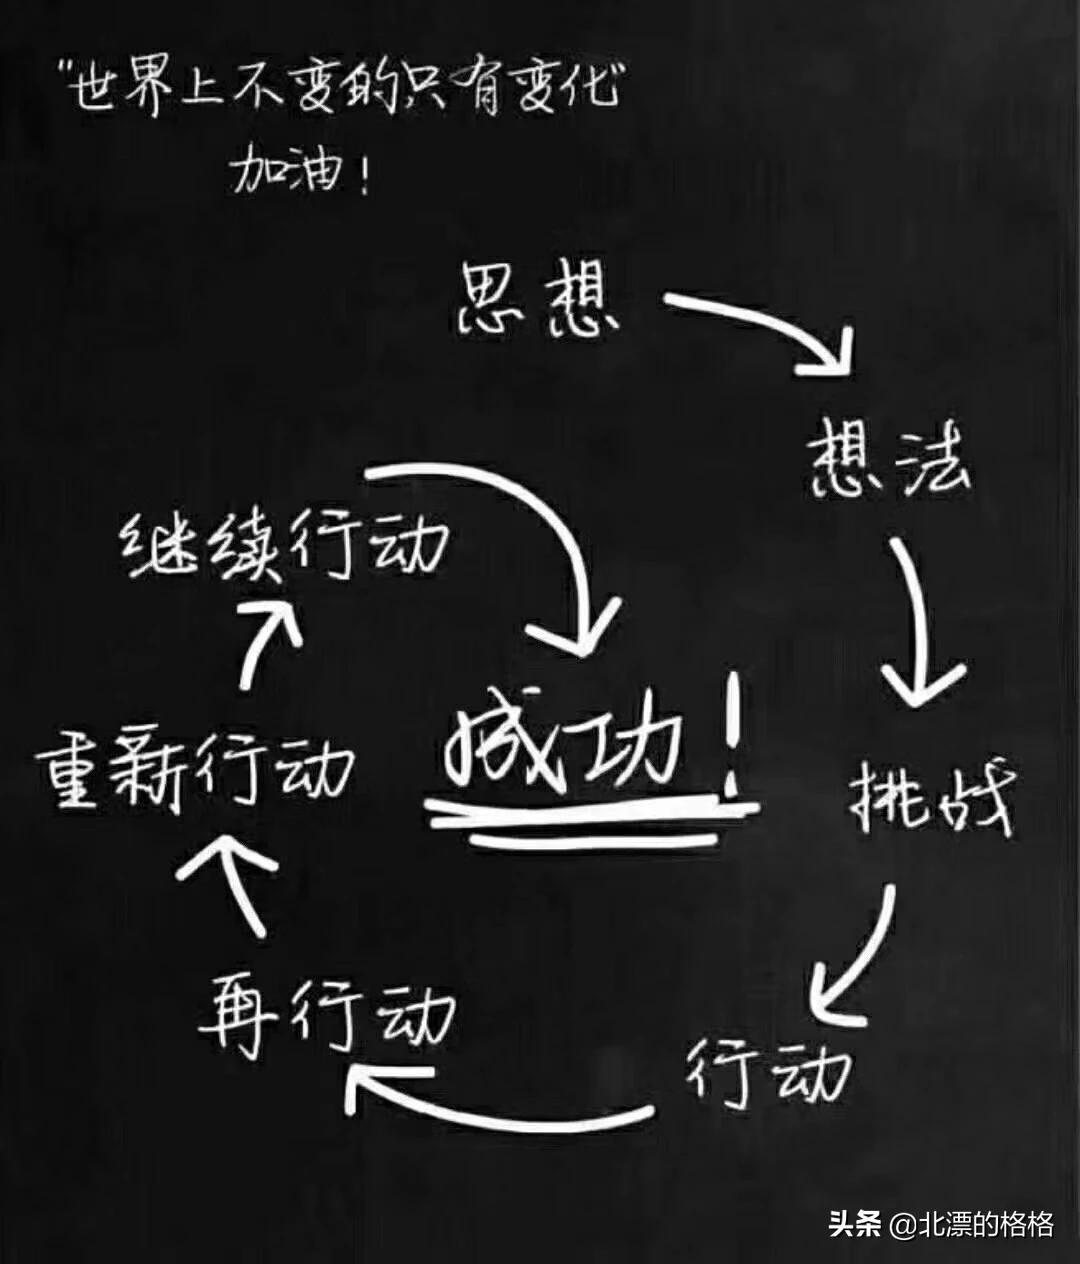 "世界上不变的只有变化"
加油！
思想
想法
挑战
行动
再行动
重新行动
继续行动
成功！
头条 @北漂的格格